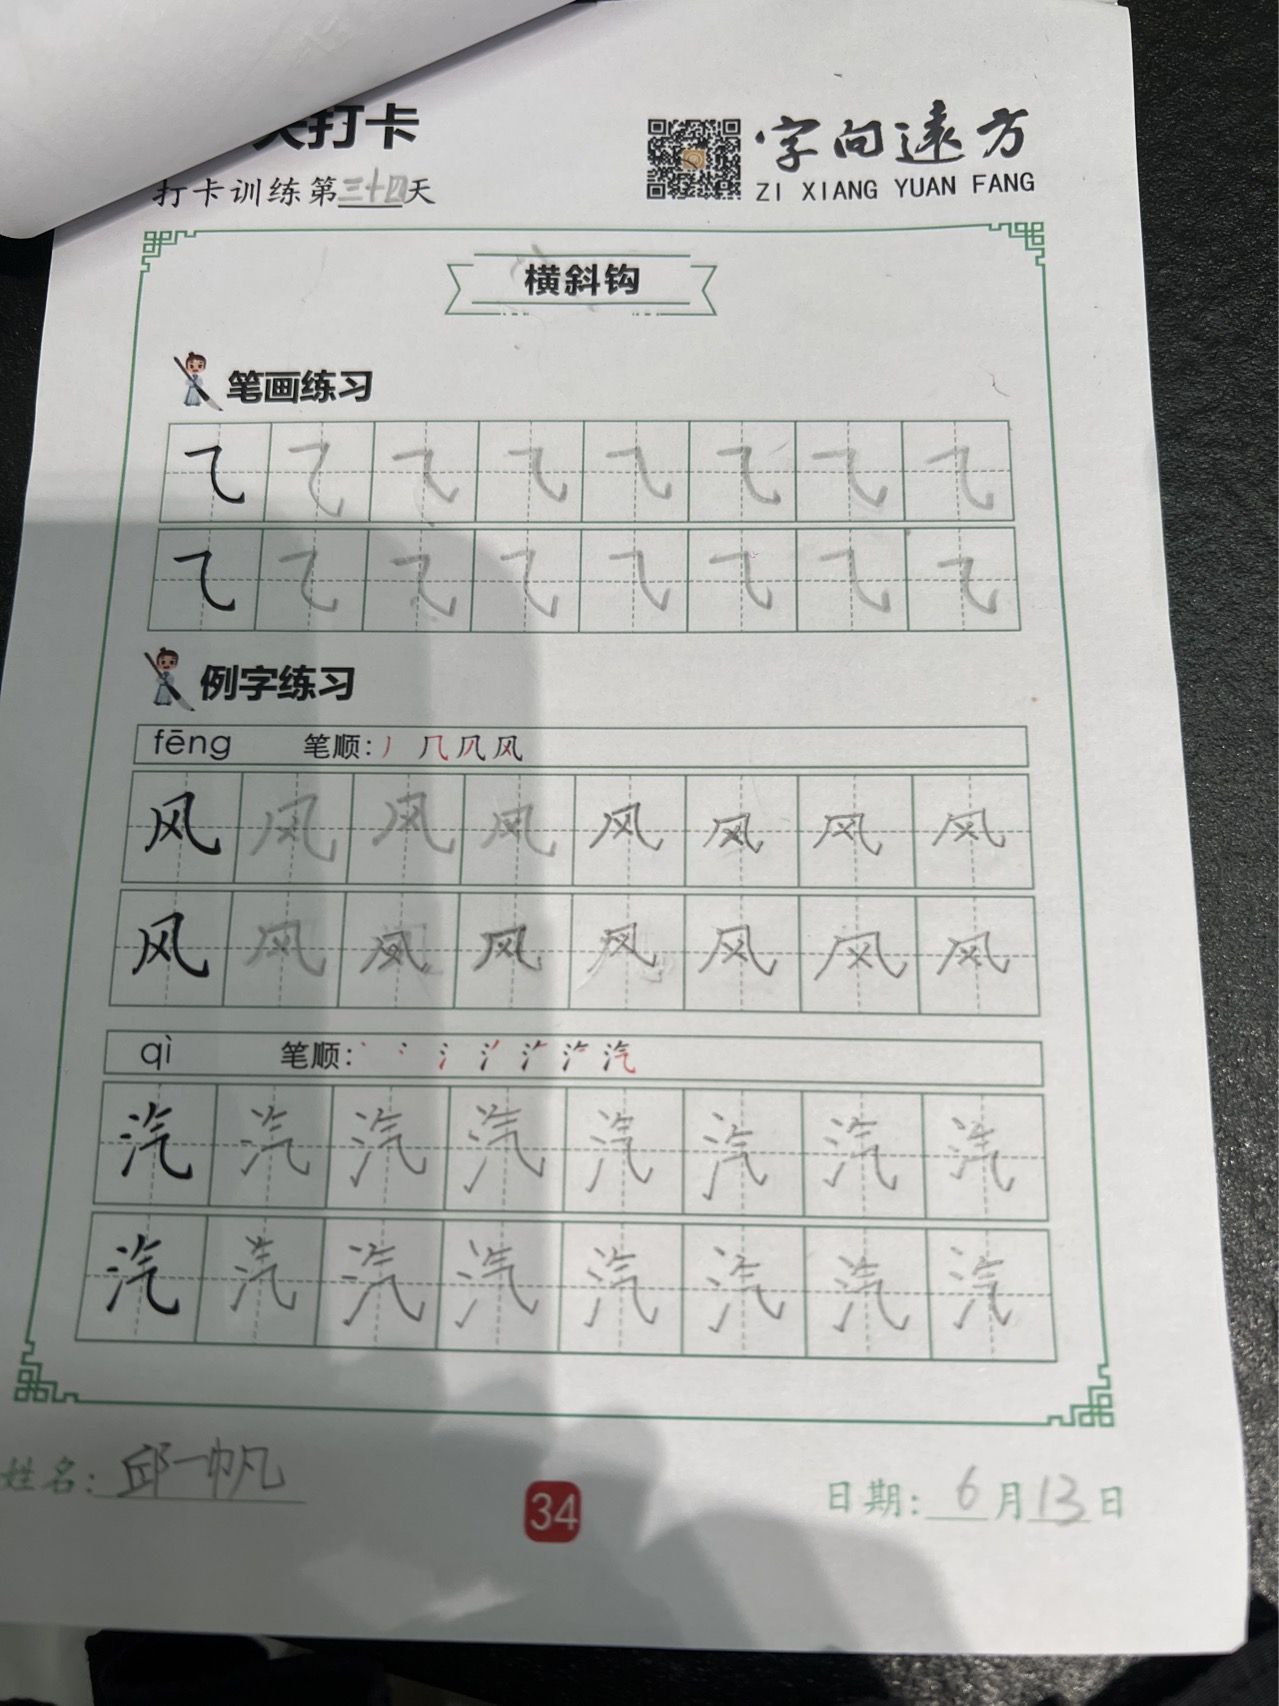 打卡
字向遠方
打卡训练第三十四天
ZI XIANG YUAN FANG
横斜钩
笔画练习
例字练习
fēng 笔顺:丿 几 凤 风
风 风 风 风 风 风 风 风
风 风 风 风 风 风 风 风
qì 笔顺:
汽 汽 汽 汽 汽 汽 汽 汽
汽 汽 汽 汽 汽 汽 汽 汽
姓名:邱一帆
34
日期:6月13日